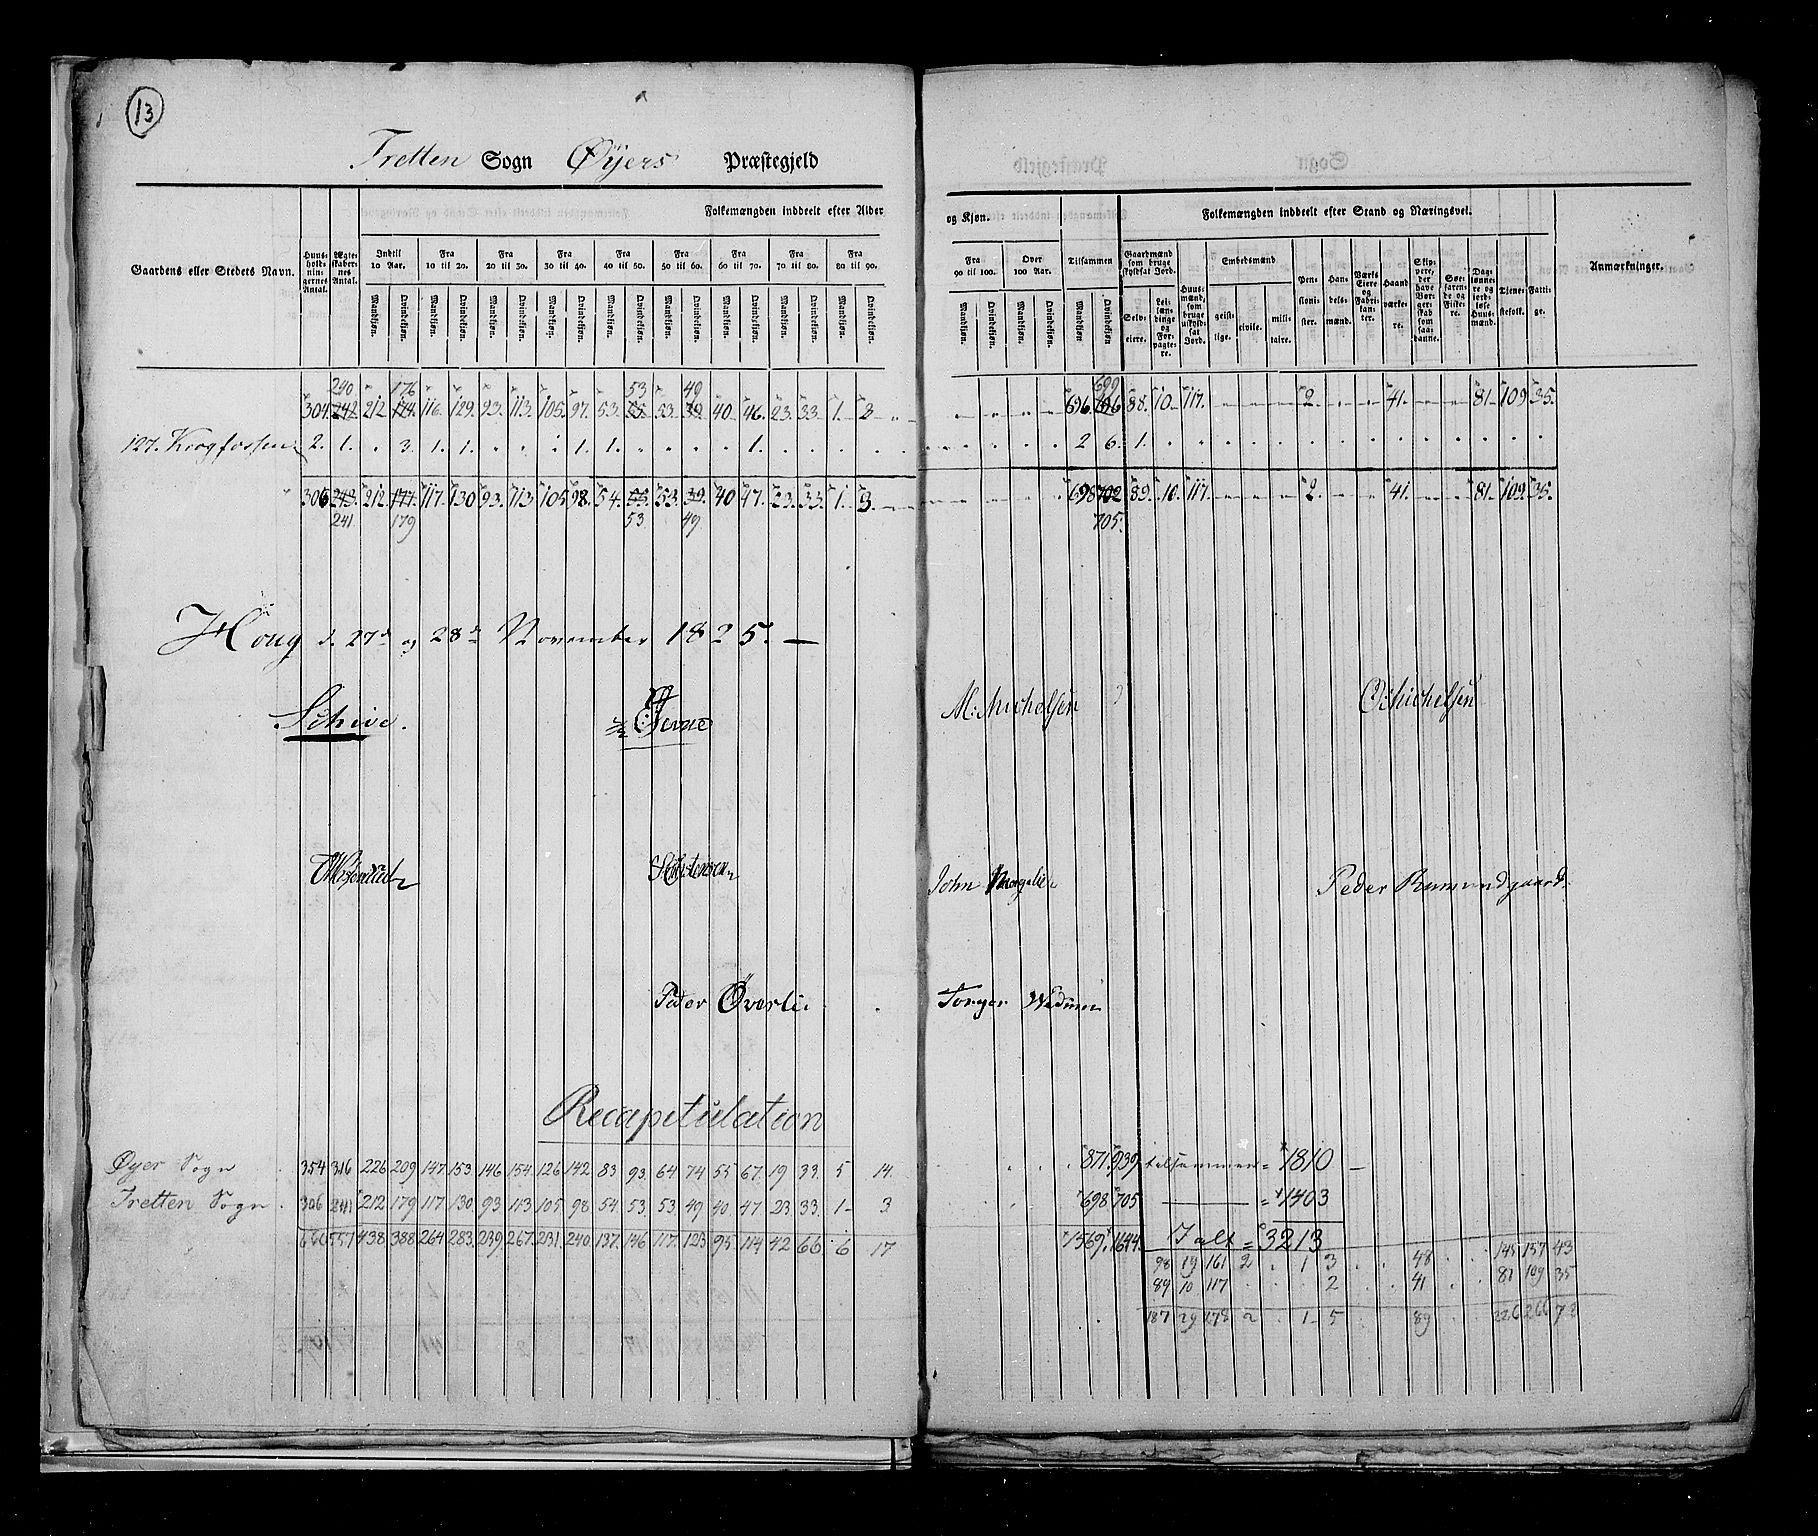 13
Tretten Sogn Øyers Præstegjeld
Folkemængden inddeelt efter Alder og Kjøn. Folkemængden inddeelt efter Stand og Næringsvei.
Gaardens eller Stedets Navn. Huusholdningernes Antal. Ægteskabernes Antal. Indtil 10 Aar. Fra 10 til 20. Fra 20 til 30. Fra 30 til 40. Fra 40 til 50. Fra 50 til 60. Fra 60 til 70. Fra 70 til 80. Fra 80 til 90. Fra 90 til 100. Over 100 Aar. Tilsammen Gaardmænd som bruge skyldsat Jord. Huusmænd, som bruge uskyldsat Jord. Embedsmænd Pensionister. Handelsmænd. Værks Eiere og Fabrikanter. Haandværkere. Skippere, der have Borgerskab som saadanne. Søefarende og Fiskere. Daglønnere og jordløse Huusmænd. Tjenestefolk. Fattige. Anmærkninger.
Mandkjøn. Qvindekjøn. Mandkjøn. Qvindekjøn. Mandkjøn. Qvindekjøn. Mandkjøn. Qvindekjøn. Mandkjøn. Qvindekjøn. Mandkjøn. Qvindekjøn. Mandkjøn. Qvindekjøn. Mandkjøn. Qvindekjøn. Mandkjøn. Qvindekjøn. Mandkjøn. Qvindekjøn. Mandkjøn. Qvindekjøn. Mandkjøn Qvindekjøn Selveiere. Leilændinge og Forpagtere. geistlige. civile. militaire.
240 176 53 49 699
304. 242 212. 174. 116. 129. 93. 113. 105. 97. 53. 55. 53. 39. 40. 46. 23. 33. 1. 3 696. 696 88. 10. 117. 2. 41. 81 109 35.
127. Krogfossen 2. 1. 3. 1. 1. 1. 1. 1. 2 6. 1.
306 243. 212. 177. 117. 130. 93. 113 105 98. 54. 55. 53. 39. 40 47. 23. 33. 1. 3. 698 702 89. 10. 117. 2. 41. 81. 109. 35.
241 179 53. 49 705.
Houg d. 27de og 28de November 1825. —
Schive. M: Michelsen O: Michelsen
John Peder Rusmundgaard.
Peder Øverlie Torger
Recapetulation
Øyer Sogn 354 316 226 209 147 153 146 154 126 142 83 93 64 74 55 67 19 33. 5 14. 871. 939. tilsammen = 1810 —
Tretten Sogn. 306 241 212 179 117 130 93 113 105 98 54. 53. 53 49 40. 47 23 33. 1 3 698. 705 = 1403
660 557 438 388 264 283. 239. 267. 231. 240. 137. 146 117. 123 95 114 42 66 6 17 1569. 1644. Ialt = 3213
98 19 161 2 1 3 48 145 157 43
89 10 117 2 41 81 109 35
187 29 278 2 1 5 89 226 266 78